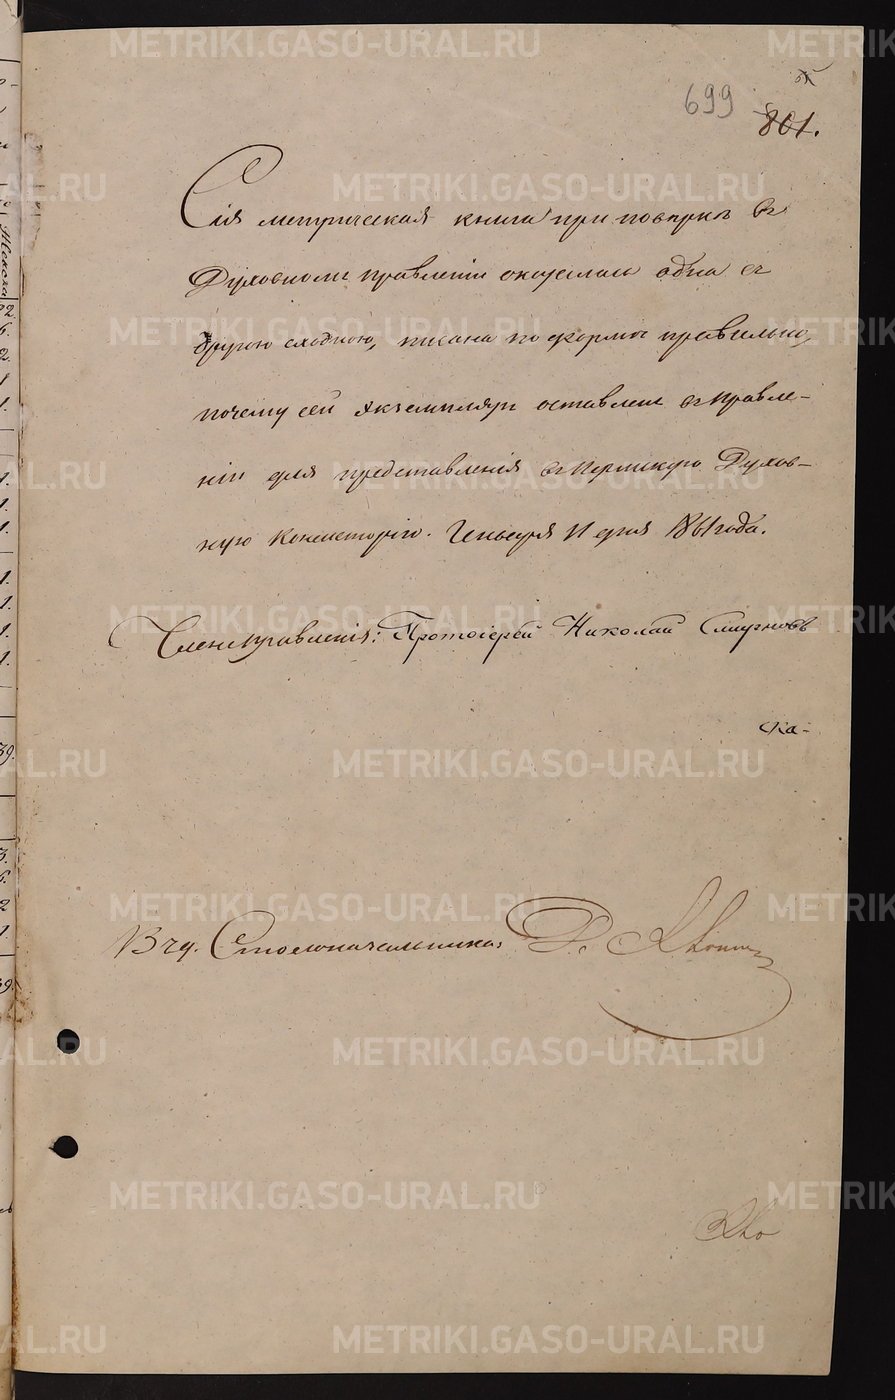 699
801.
Сія метрическая книга при повѣркѣ въ
Духовномъ правленіи оказалась одна съ
другою сходною, писана по формѣ правильно,
почему сей экземпляръ оставленъ въ правле-
ніи для представленія въ Пермскую Духов-
ную Консисторію. Генваря 11 дня 1861 года.
Членъ правленія: Протоіерей Николай Смирновъ
ска-
Столоначальника:
METRIKI.GASO-URAL.RU